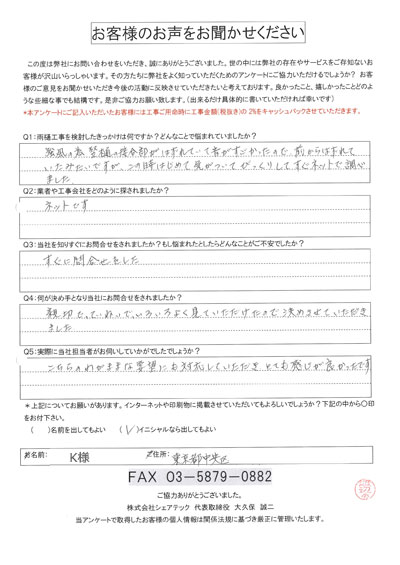 お客様のお声をお聞かせください
この度は弊社にお問い合わせをいただき、誠にありがとうございました。世の中には弊社の存在やサービスをご存知ないお
客様が沢山いらっしゃいます。その方たちに弊社をよく知っていただくためのアンケートにご協力いただけるでしょうか？ お客
様のご意見をお聞かせいただき今後の活動に反映させていただきたいと考えております。良かったこと、嬉しかったことどのよ
うな些細な事でも結構です。是非ご協力お願い致します。（出来るだけ具体的に書いていただければ幸いです）
*本アンケートにご記入いただいたお客様には工事ご用命時に工事金額(税抜き)の 2%をキャッシュバックさせていただきます。
Q1：雨樋工事を検討したきっかけは何ですか？どんなことで悩まれていましたか？
強風の為 竪樋の接合部がはずれていて音がすごかったので、前からはずれて
いたみたいですが、この時はじめて気がついてびっくりしてすぐネットで調べ
ました
Q2：業者や工事会社をどのように探されましたか？
ネットです
Q3：当社を知りすぐにお問合せをされましたか？もし悩まれたとしたらどんなことがご不安でしたか？
すぐに問合せをした
Q4：何が決め手となり当社にお問合せをされましたか？
親切で、ていねいで、いろいろよく見ていただけたので決めさせていただき
ました
Q5：実際に当社担当者がお伺いしていかがでしたでしょうか？
こちらのわがままな要望にも対応していただき とても感じが良かったです
＊上記についてお願いがあります。インターネットや印刷物に掲載させていただいてもよろしいでしょうか？下記の中から〇印
をお付下さい。
（　）名前を出してもよい　（✓）イニシャルなら出してもよい
お名前： K様 ご住所： 東京都中央区
FAX 03-5879-0882
ご協力ありがとうございました。
株式会社シェアテック 代表取締役 大久保 誠二
当アンケートで取得したお客様の個人情報は関係法規に基づき厳正に管理いたします。